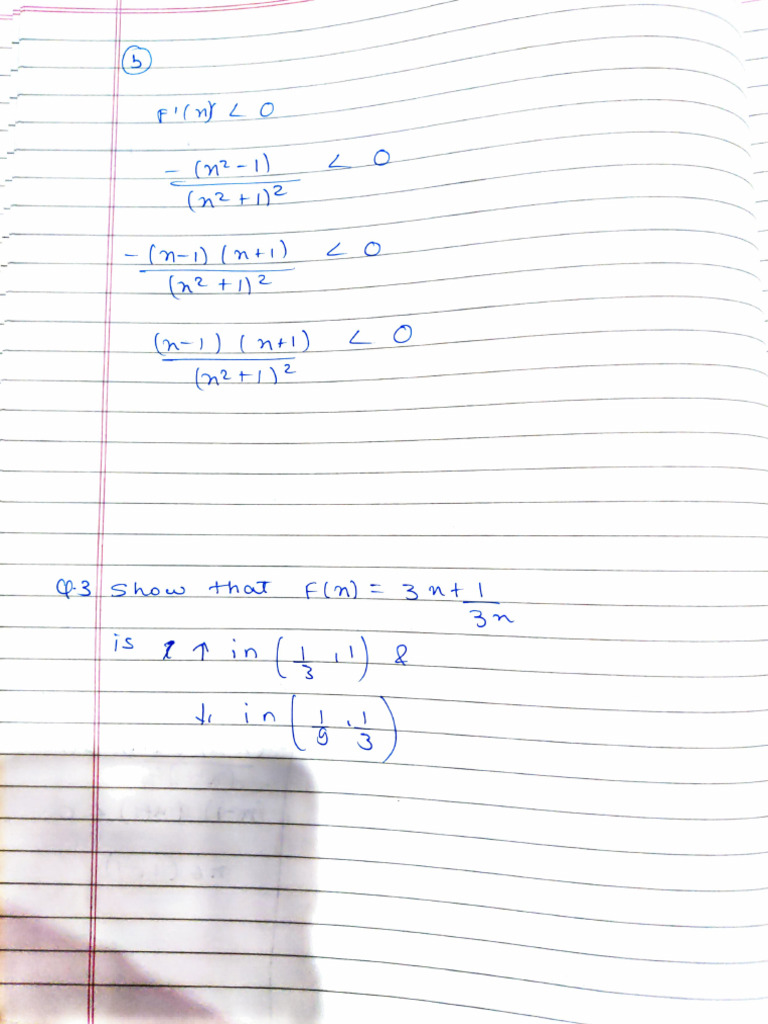 (b)
F'(x) < 0
-(x² - 1) / (x² + 1)² < 0
-(x-1) (x+1) / (x² + 1)² < 0
(x-1) (x+1) / (x² + 1)² < 0
Q.3 Show that F(x) = 3x + 1/3x
is ↑ in (1/3, 1) &
↓ in (1/9, 1/3)